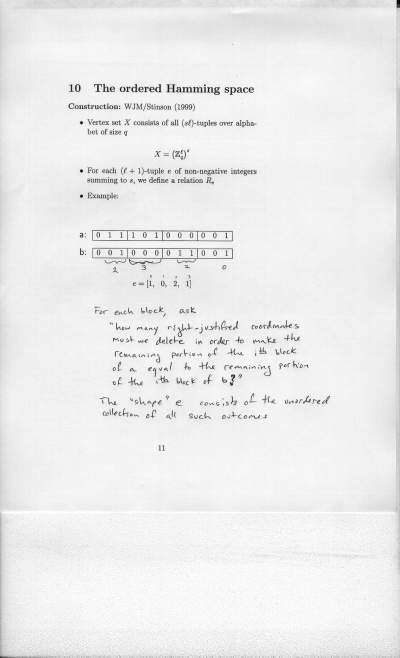 10 The ordered Hamming space
Construction: WJM/Stinson (1999)
• Vertex set X consists of all (sℓ)-tuples over alpha-
bet of size q
X = (ℤ_q^ℓ)^s
• For each (ℓ + 1)-tuple e of non-negative integers
summing to s, we define a relation R_e
• Example:
a: 0 1 1 1 0 1 0 0 0 0 0 1
b: 0 0 1 0 0 0 0 1 1 0 0 1
2 3 2 0
0 1 2 3
e = [1, 0, 2, 1]
For each block, ask
"how many right-justified coordinates
must we delete in order to make the
remaining portion of the ith block
of a equal to the remaining portion
of the ith block of b?"
The "shape" e consists of the unordered
collection of all such outcomes
11